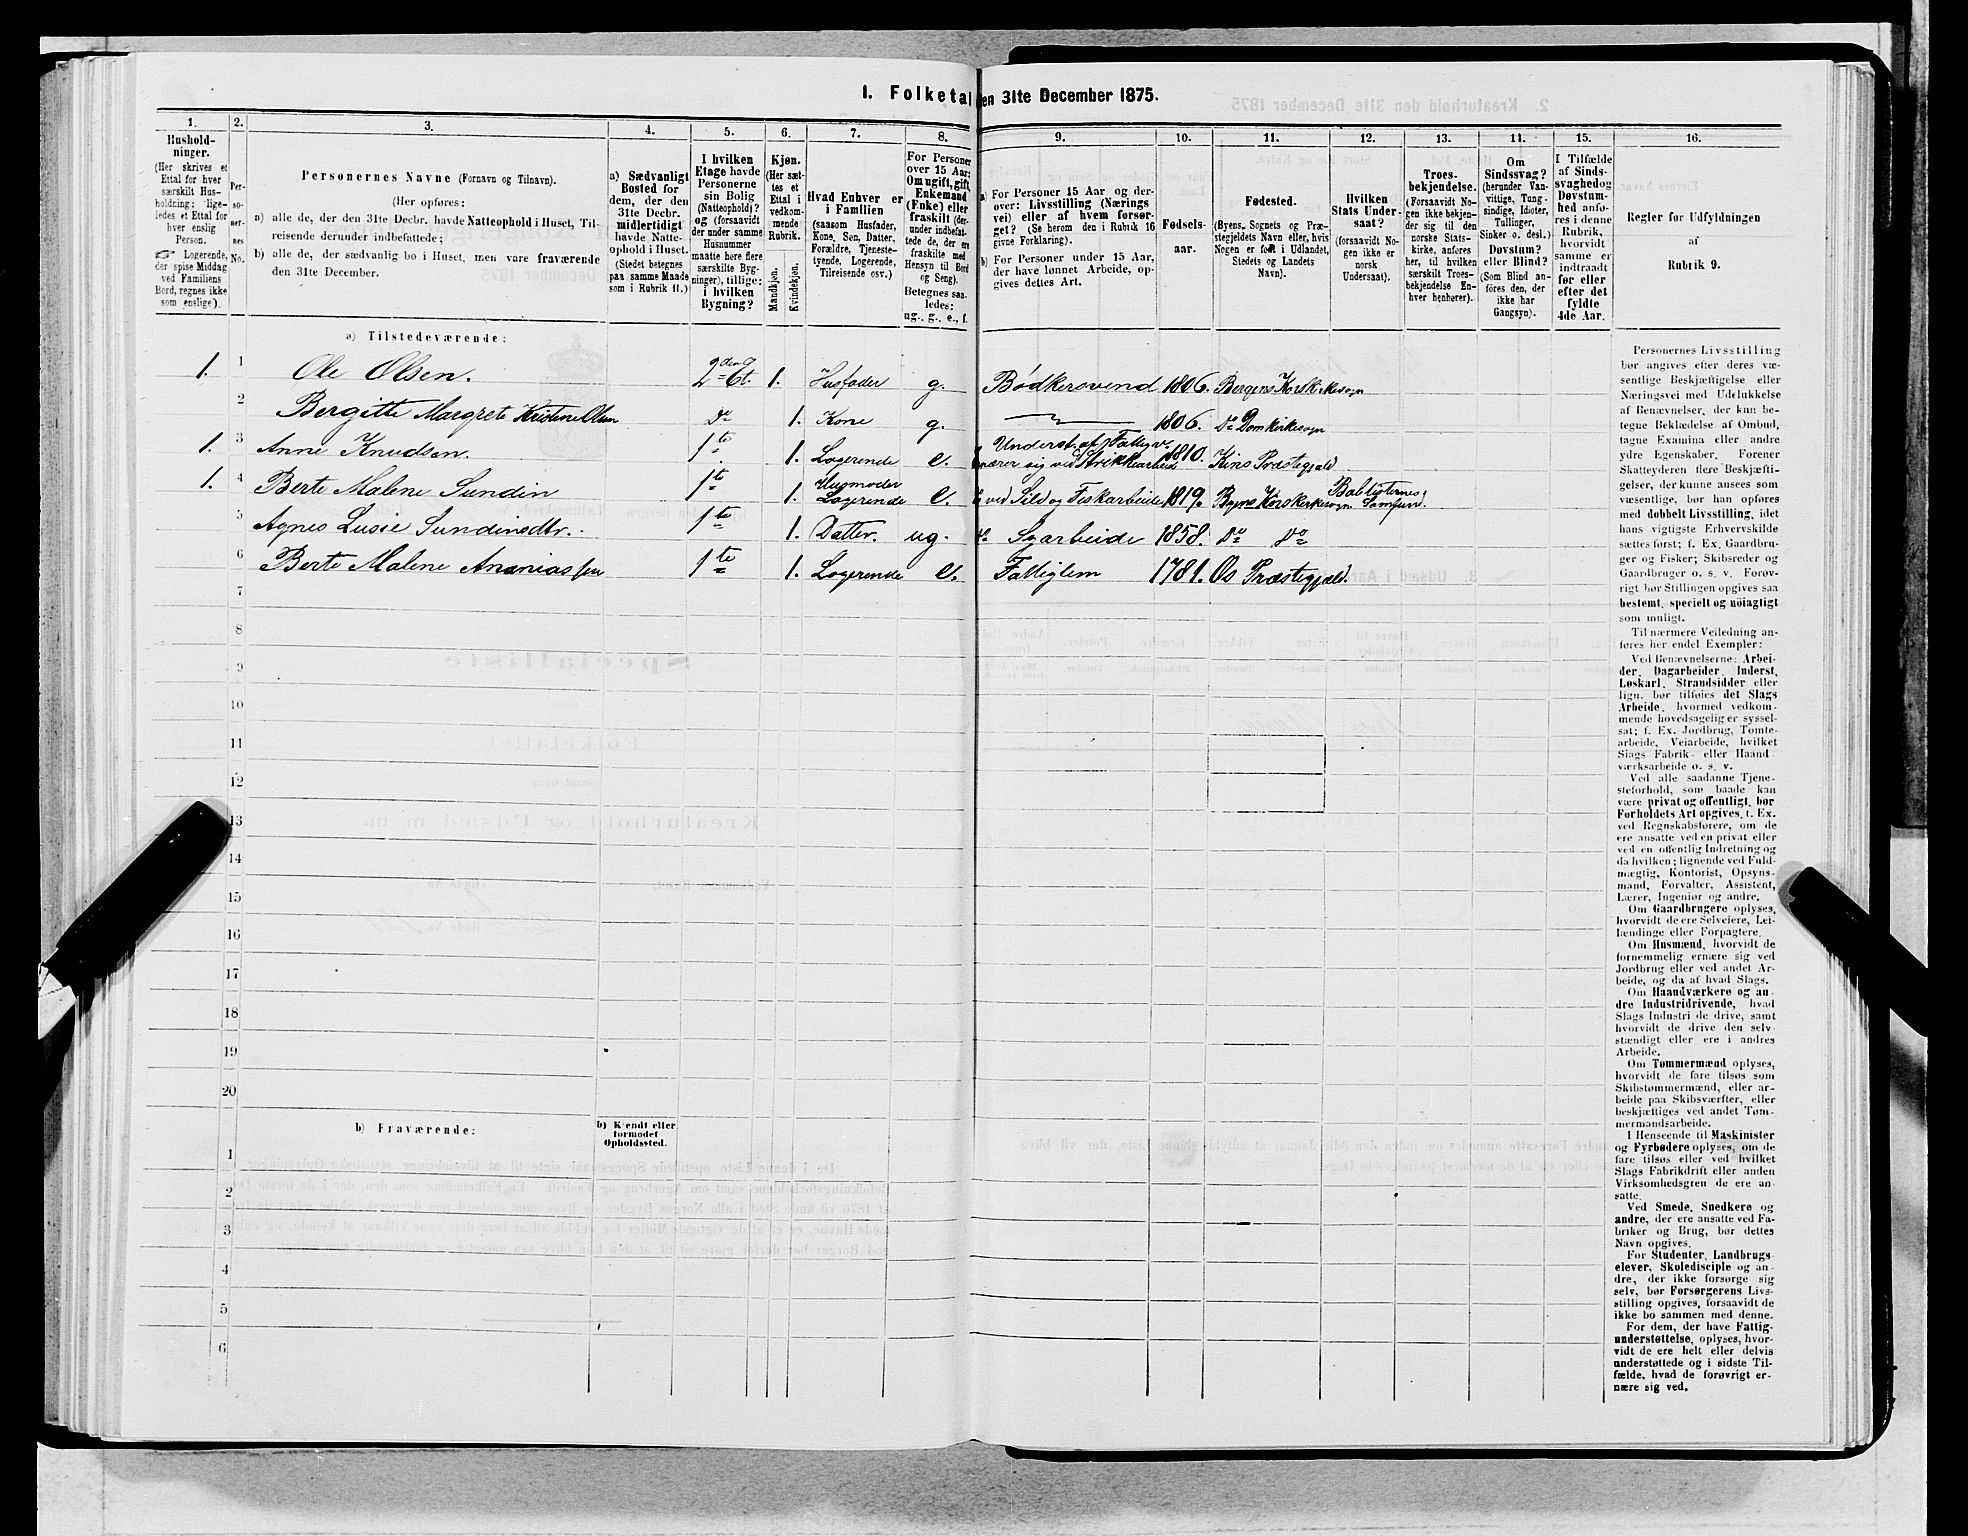 I. Folketal den 31te December 1875.
1.
2.
3.
4.
5.
6.
7.
8.
9.
10.
11.
12.
13.
14.
15.
16.
Hushold-
ninger.
(Her skrives et
Ettal for hver
særskilt Hus-
holdning; lige-
ledes et Ettal for
hver enslig
Person.
Logerende,
der spise Middag
ved Familiens
Bord, regnes ikke
som enslige).
Per-
so-
ner-
nes
No.
Personernes Navne (Fornavn og Tilnavn).
(Her opføres:
a) alle de, der den 31te Decbr. havde Natteophold i Huset, Til-
reisende derunder indbefattede;
b) alle de, der sædvanlig bo i Huset, men vare fraværende
den 31te December.
a) Sædvanligt
Bosted for
dem, der den
31te Decbr.
midlertidigt
havde Natte-
ophold i Huset.
(Stedet betegnes
paa samme Maade
som i Rubrik 11.)
I hvilken
Etage havde
Personerne
sin Bolig
(Natteophold)?
og (forsaavidt
der under samme
Husnummer
maatte høre flere
særskilte Byg-
ninger), tillige:
i hvilken
Bygning?
Kjøn.
(Her sæt-
tes et
Ettal i
vedkom-
mende
Rubrik.
Mandkjøn.
Kvindekjøn.
Hvad Enhver er
i Familien
(saasom Husfader,
Kone, Søn, Datter,
Forældre, Tjeneste-
tyende, Logerende,
Tilreisende osv.)
For Personer
over 15 Aar:
Om ugift, gift,
Enkemand
(Enke) eller
fraskilt (der-
under indbefat-
tede de, der ere
fraskilte med
Hensyn til Bord
og Seng).
Betegnes saa-
ledes:
ug., g., e., f.
a) For Personer 15 Aar og der-
over: Livsstilling (Nærings
vei) eller af hvem forsør-
get? (Se herom den i Rubrik 16
givne Forklaring).
b) For Personer under 15 Aar,
der have lønnet Arbeide, op-
gives dettes Art.
Fødsels-
aar.
Fødested.
(Byens, Sognets og Præ-
stegjeldets Navn eller, hvis
Nogen er født i Udlandet,
Stedets og Landets
Navn).
Hvilken
Stats Under-
saat?
(forsaavidt No-
gen ikke er
norsk
Undersaat).
Troes-
bekjendelse.
(Forsaavidt No-
gen ikke bekjen-
der sig til den
norske Stats-
kirke, anføres
her, til hvilken
særskilt Troes-
bekjendelse En-
hver henhører).
Om
Sindssvag?
(herunder Van-
vittige, Tung-
sindige, Idioter,
Tullinger,
Sinker o. desl.)
Døvstum?
eller Blind?
(Som Blind an-
føres den, der
ikke har
Gangsyn).
I Tilfælde
af Sinds-
svaghed og
Døvstum-
hed anfø-
res i denne
Rubrik,
hvorvidt
samme er
indtraadt
før eller
efter det
fyldte
4de Aar.
Regler for Udfyldningen
af
Rubrik 9.
a) Tilstedeværende:
1. 1 Ole Olsen. 2den Et. 1. Husfader g. Bødkersvend 1806. Bergens Korskirkesogn
2 Bergitte Margrete Kristine Olsen Do 1. Kone g. 1806. Do Domkirkesogn
1. 3 Anne Knudsen. 1te 1. Logerende e. Underst. af Fattigv. nærer sig ved Strikkearbeide 1810. Kins Præstegjæld
1. 4 Berte Malene Sundin 1te 1. Husmoder Logerende e. ved Sild og Fiskarbeide 1819. Korskirkesogn
5 Agnes Lusie Sundinsdtr. 1te 1. Datter. ug. do Syarbeide 1858. Do Do
6 Berte Malene Ananiassen 1te 1. Logerende e. Fattiglem 1781. Os Præstegjæld.
7
8
9
10
11
12
13
14
15
16
17
18
19
20
b) Fraværende:
b) Kjendt eller
formodet
Opholdssted.
1
2
3
4
5
6
Personernes Livsstilling
bør angives efter deres væ-
sentlige Beskjæftigelse eller
Næringsvei med Udelukkelse
af Benævnelser, der kun be-
tegne Beklædelse af Ombud,
tagne Examina eller andre
ydre Egenskaber. Forener
Skatteyderen flere Beskjæfti-
gelser, der kunne ansees som
væsentlige, bør han opføres
med dobbelt Livsstilling, idet
hans vigtigste Erhvervskilde
sættes først; f. Ex. Gaardbru-
ger og Fisker; Skibsreder og
Gaardbruger o. s. v. Forøv-
rigt bør Stillingen opgives saa
bestemt, specielt og nøiagtigt
som muligt.
Til nærmere Veiledning an-
føres her endel Exempler:
Ved Benævnelserne: Arbei-
der, Dagarbeider, Inderst,
Løskarl, Strandsidder eller
lign. bør tilføies det Slags
Arbeide, hvormed vedkom-
mende hovedsagelig er syssel-
sat; f. Ex. Jordbrug, Tomte-
arbeide, Veiarbeide, hvilket
Slags Fabrik- eller Haand
værksarbeide o. s. v.
Ved alle saadanne Tjene-
steforhold, som baade kan
være privat og offentligt, bør
Forholdets Art opgives, t. Ex.
ved Regnskabsførere, om de
ere ansatte ved en privat eller
ved en offentlig Indretning og
da hvilken; lignende ved Fuld-
mægtig, Kontorist, Opsyns-
mand, Forvalter, Assistent,
Lærer, Ingeniør og andre.
Om Gaardbrugere oplyses,
hvorvidt de ere Selveiere, Lei-
lændinge eller Forpagtere.
Om Husmænd, hvorvidt de
fornemmelig ernære sig ved
Jordbrug eller ved andet Ar-
beide, og da af hvad Slags.
Om Haandværkere og an
dre Industridrivende, hvad
Slags Industri de drive, samt
hvorvidt de drive den selv-
stændigt eller ere i andres
Arbeide.
Om Tømmermænd oplyses,
hvorvidt de fare tilsøs som
Skibstømmermænd, eller ar-
beide paa Skibsværfter, eller
beskjæftiges ved andet Tøm-
mermandsarbeide.
I Henseende til Maskinister
og Fyrbødere oplyses, om de
fare tilsøs eller ved hvilket
Slags Fabrikdrift eller anden
Virksomhedsgren de ere an-
satte.
Ved Smede, Snedkere og
andre, der ere ansatte ved Fa-
briker og Brug, bør dettes
Navn opgives.
For Studenter, Landbrugs
elever, Skoledisciple og an-
dre, der ikke forsørge sig
selv, bør Forsørgerens Livs-
stilling opgives, forsaavidt de
ikke bo sammen med denne.
For dem, der have Fattig-
understøttelse, oplyses, hvor-
vidt de ere helt eller delvis
understøttede og i sidste Til-
fælde, hvad de forøvrigt er-
nære sig ved.